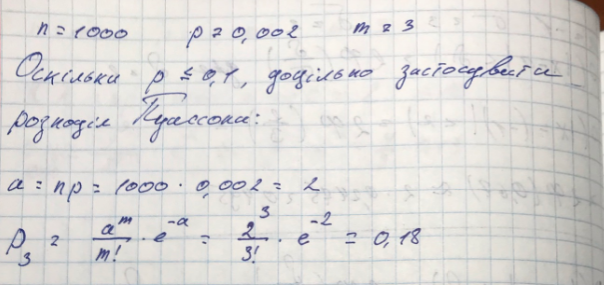 n = 1000 p = 0,002 m = 3
Оскільки p ≤ 0,1, доцільно застосувати
розподіл Пуассона:
a = np = 1000 · 0,002 = 2
P₃ = a^m/m! · e^(-a) = 2³/3! · e^(-2) = 0,18